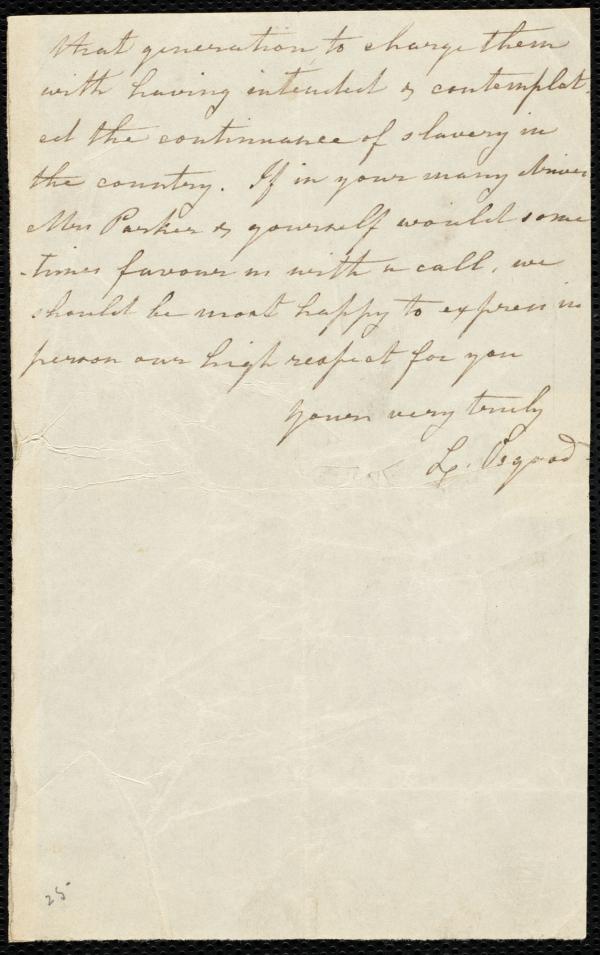 that generation, to charge them
with having intended & contemplat-
ed the continuance of slavery in
the country. If in your many drives
Mrs Parker & yourself would some
-times favour us with a call, we
should be most happy to express in
person our high respect for you
Yours very truly
L. Osgood
25